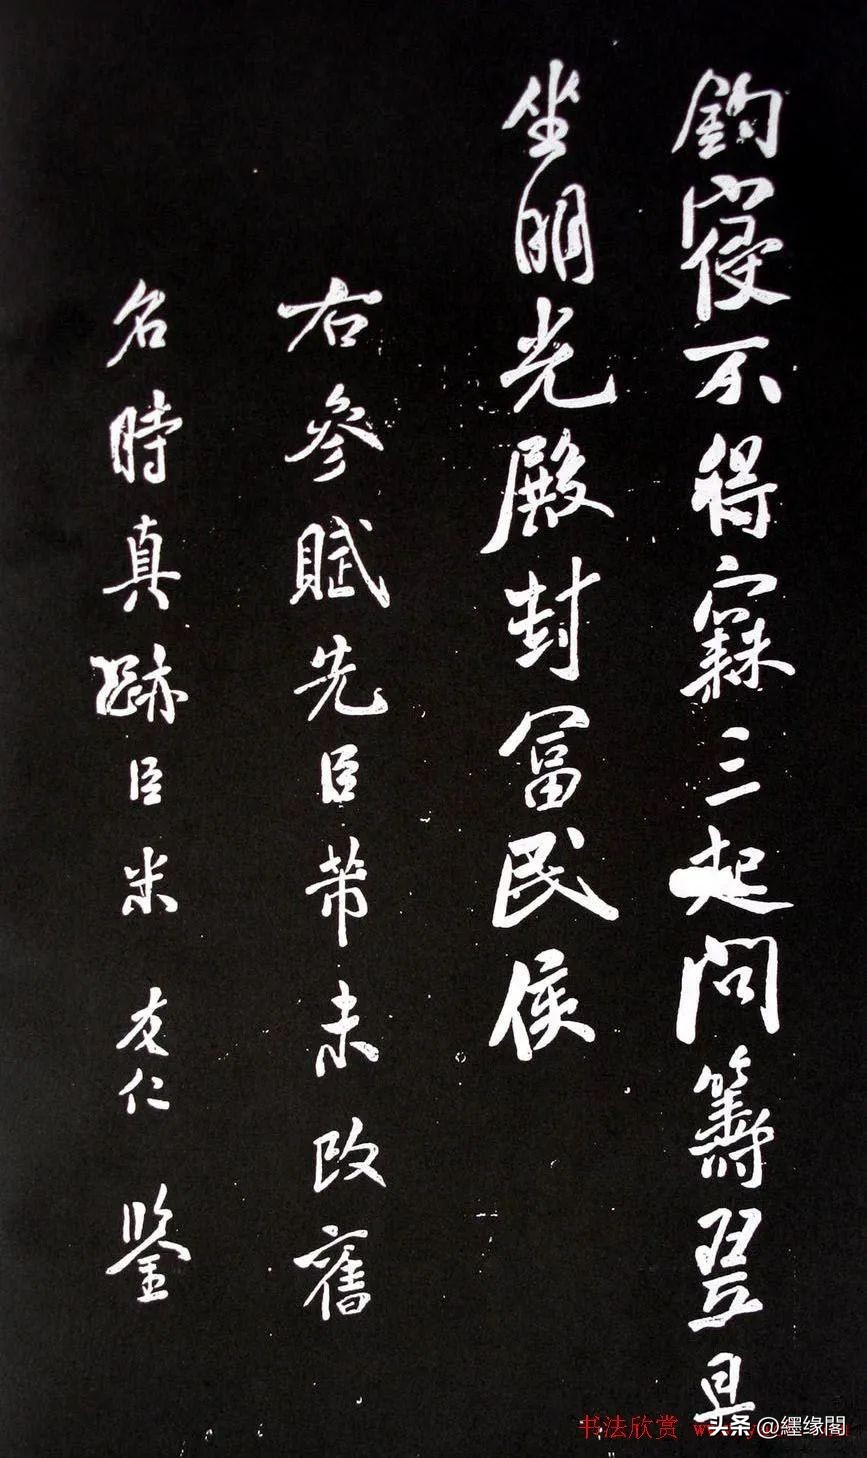 鈞寢不得寐三起問籌翌旦
坐明光殿封富民侯
右參賦先臣芾未改舊
名時真跡臣米友仁鑒
书法欣赏
头条 @缘閣